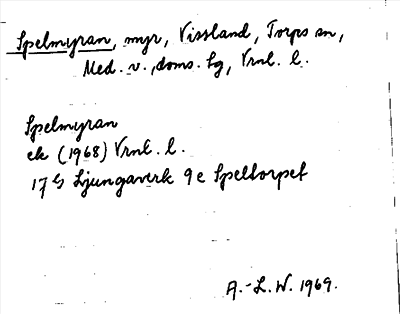 Spelmyran, myr, Vissland, Torps sn,
Med. v. doms. lg, Vrnl. l.
Spelmyran
ek (1968) Vrnl. l.
17 G Ljungaverk 9 e Speltorpet
A.-L.W. 1969.